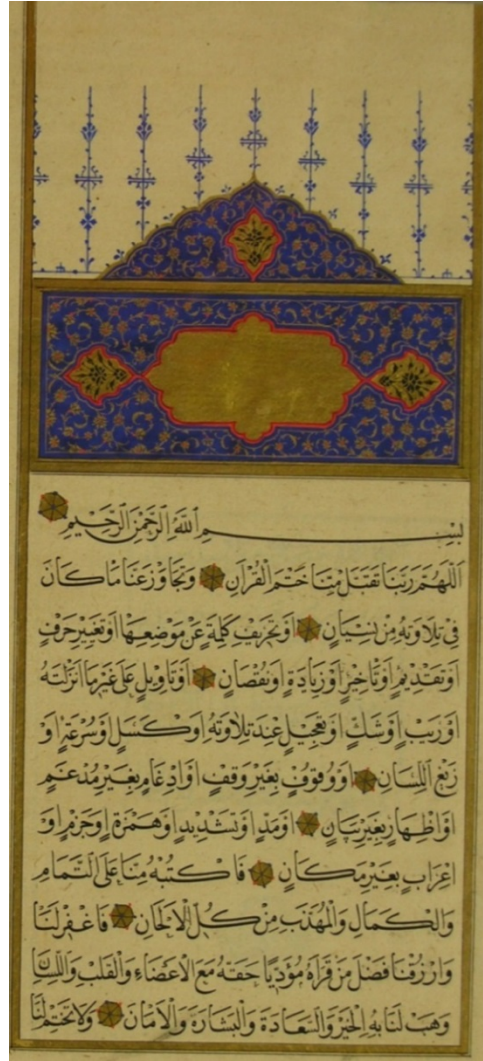 بِسْمِ اللَّهِ الرَّحْمَنِ الرَّحِيمِ
اَللَّهُمَّ رَبَّنَا تَقَبَّلْ مِنَّا خَتْمَ الْقُرْاٰنِ وَتَجَاوَزْ عَنَّا مَا كَانَ
فِي تِلَاوَتِهِ مِنْ نِسْيَانٍ اَوْ تَحْرِيفِ كَلِمَةٍ عَنْ مَوْضِعِهَا اَوْ تَغْيِيرِ حَرْفٍ
اَوْ تَقْدِيمٍ اَوْ تَأْخِيرٍ اَوْ زِيَادَةٍ اَوْ نُقْصَانٍ اَوْ تَأْوِيلٍ عَلَى غَيْرِ مَا اَنْزَلْتَهُ
اَوْ رَيْبٍ اَوْ شَكٍّ اَوْ تَعْجِيلٍ عِنْدَ تِلَاوَتِهِ اَوْ كَسَلٍ اَوْ سُرْعَةٍ اَوْ
زَيْغِ اللِّسَانِ اَوْ وُقُوفٍ بِغَيْرِ وَقْفٍ اَوْ اِدْغَامٍ بِغَيْرِ مُدْغَمٍ
اَوْ اِظْهَارٍ بِغَيْرِ بَيَانٍ اَوْ مَدٍّ اَوْ تَشْدِيدٍ اَوْ هَمْزَةٍ اَوْ جَزْمٍ اَوْ
اِعْرَابٍ بِغَيْرِ مَكَانٍ فَاكْتُبْهُ مِنَّا عَلَى التَّمَامِ
وَالْكَمَالِ وَالْمُهَذَّبِ مِنْ كُلِّ الْاَلْحَانِ فَاغْفِرْ لَنَا
وَارْزُقْنَا فَضْلَ مَنْ قَرَاَهُ مُؤَدِّيًا حَقَّهُ مَعَ الْاَعْضَاءِ وَالْقَلْبِ وَاللِّسَانِ
وَهَبْ لَنَا بِهِ الْخَيْرَ وَالسَّعَادَةَ وَالْبَشَارَةَ وَالْاَمَانَ وَلَا تَخْتِمْ لَنَا